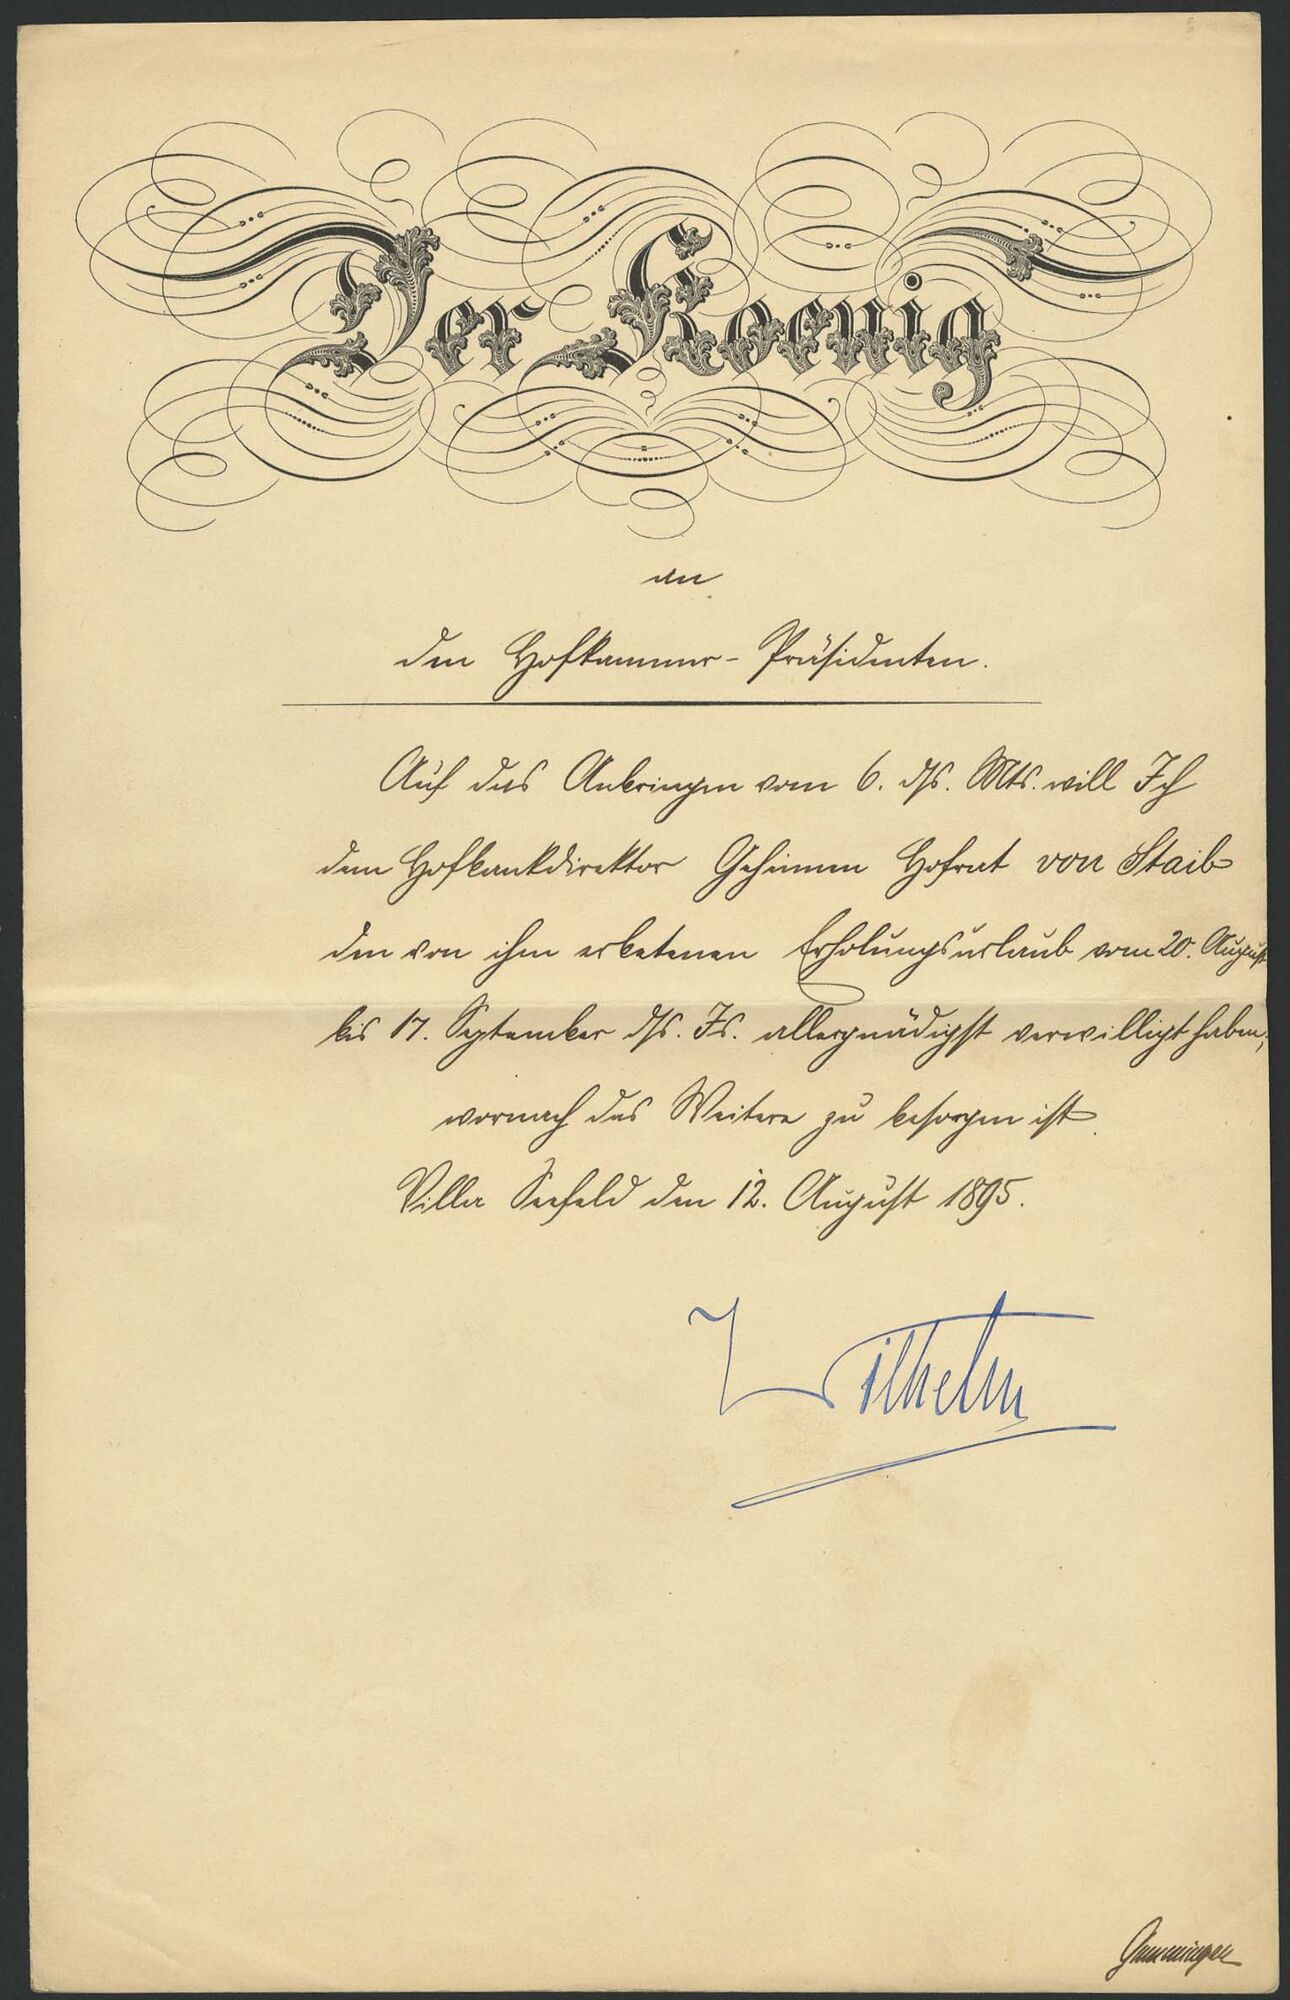 Der Koenig
an
den Hofkammer-Präsidenten.
Auf das Anbringen vom 6. ds. Mts. will Ich
dem Hofbankdirektor Geheimen Hofrat von Staib
den von ihm erbetenen Erholungsurlaub vom 20. August
bis 17. September ds. Js. allergnädigst verwilligt haben,
wornach das Weitere zu besorgen ist.
Villa Seefeld den 12. August 1895.
Wilhelm
Gemmingen